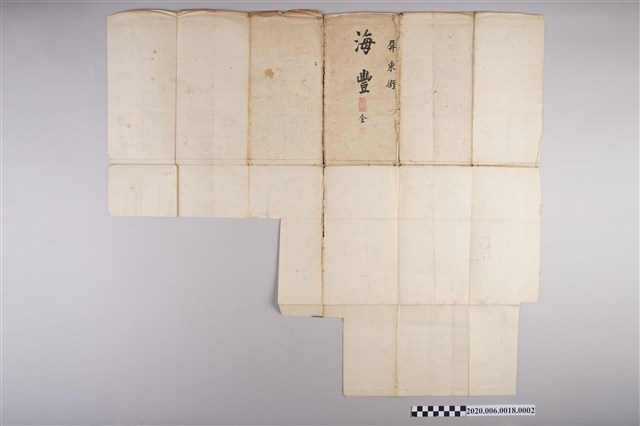 屏東街
海豐
全
2020.006.0018.0002